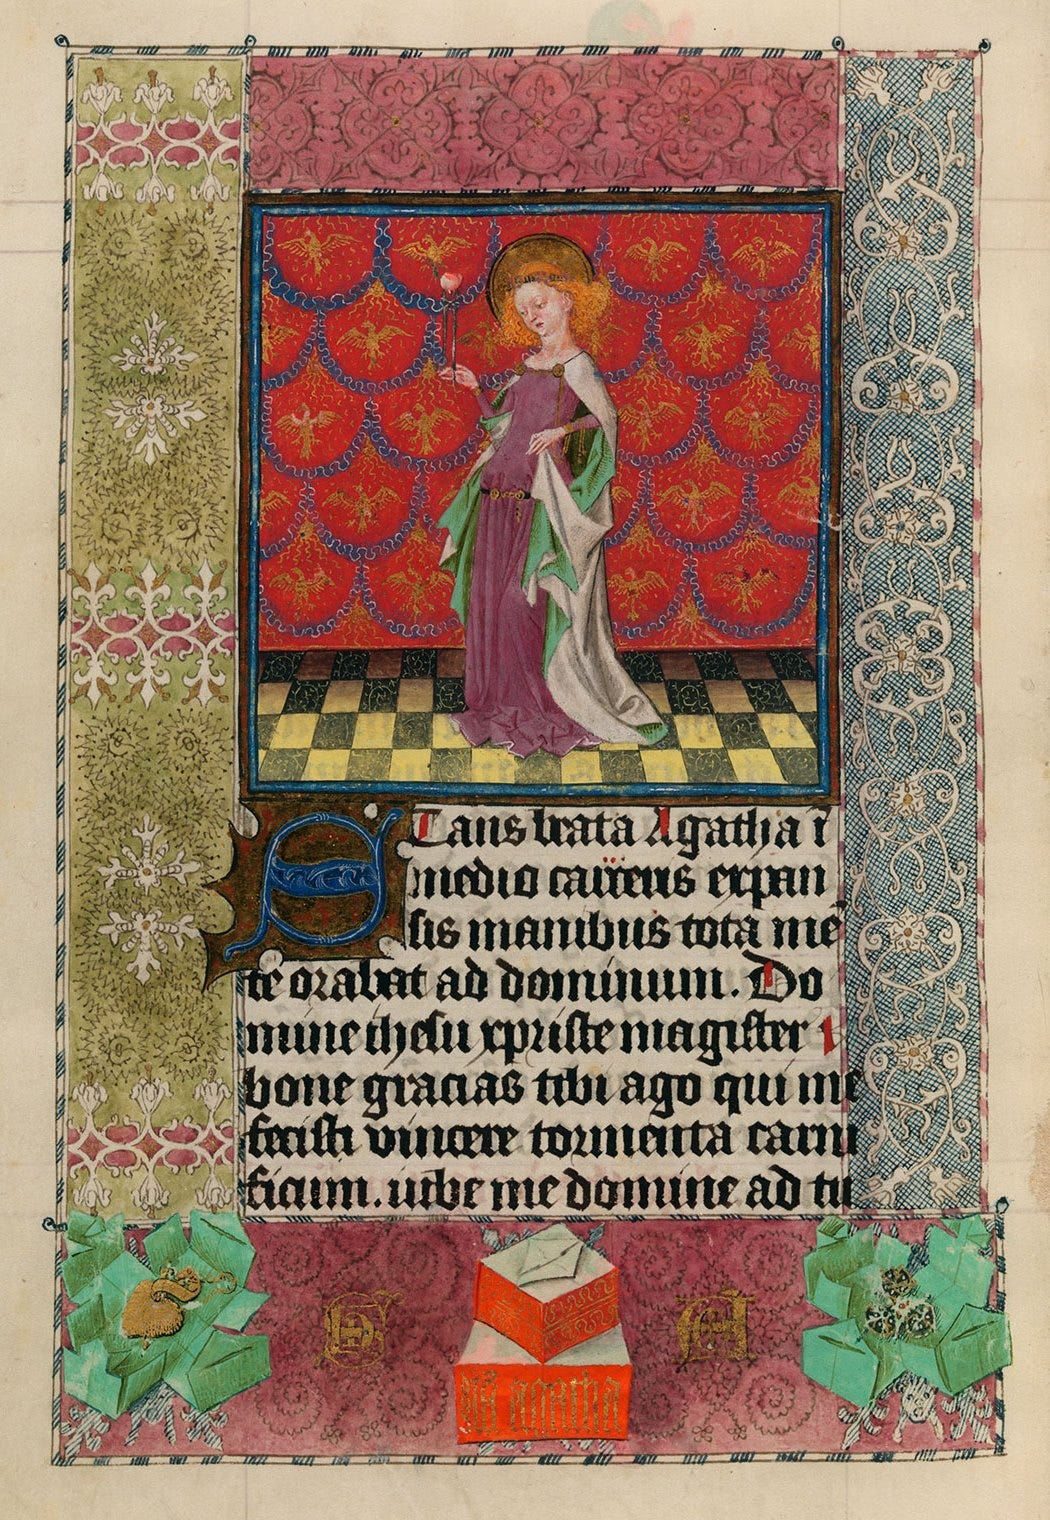 Stans beata Agatha ī
medio carceris expan
sis manibus tota mē
te orabat ad dominum. Do
mine ihesu xpriste magister
bone gracias tibi ago qui me
fecisti vincere tormenta carni
ficum. iube me domine ad tu
S A
agatha